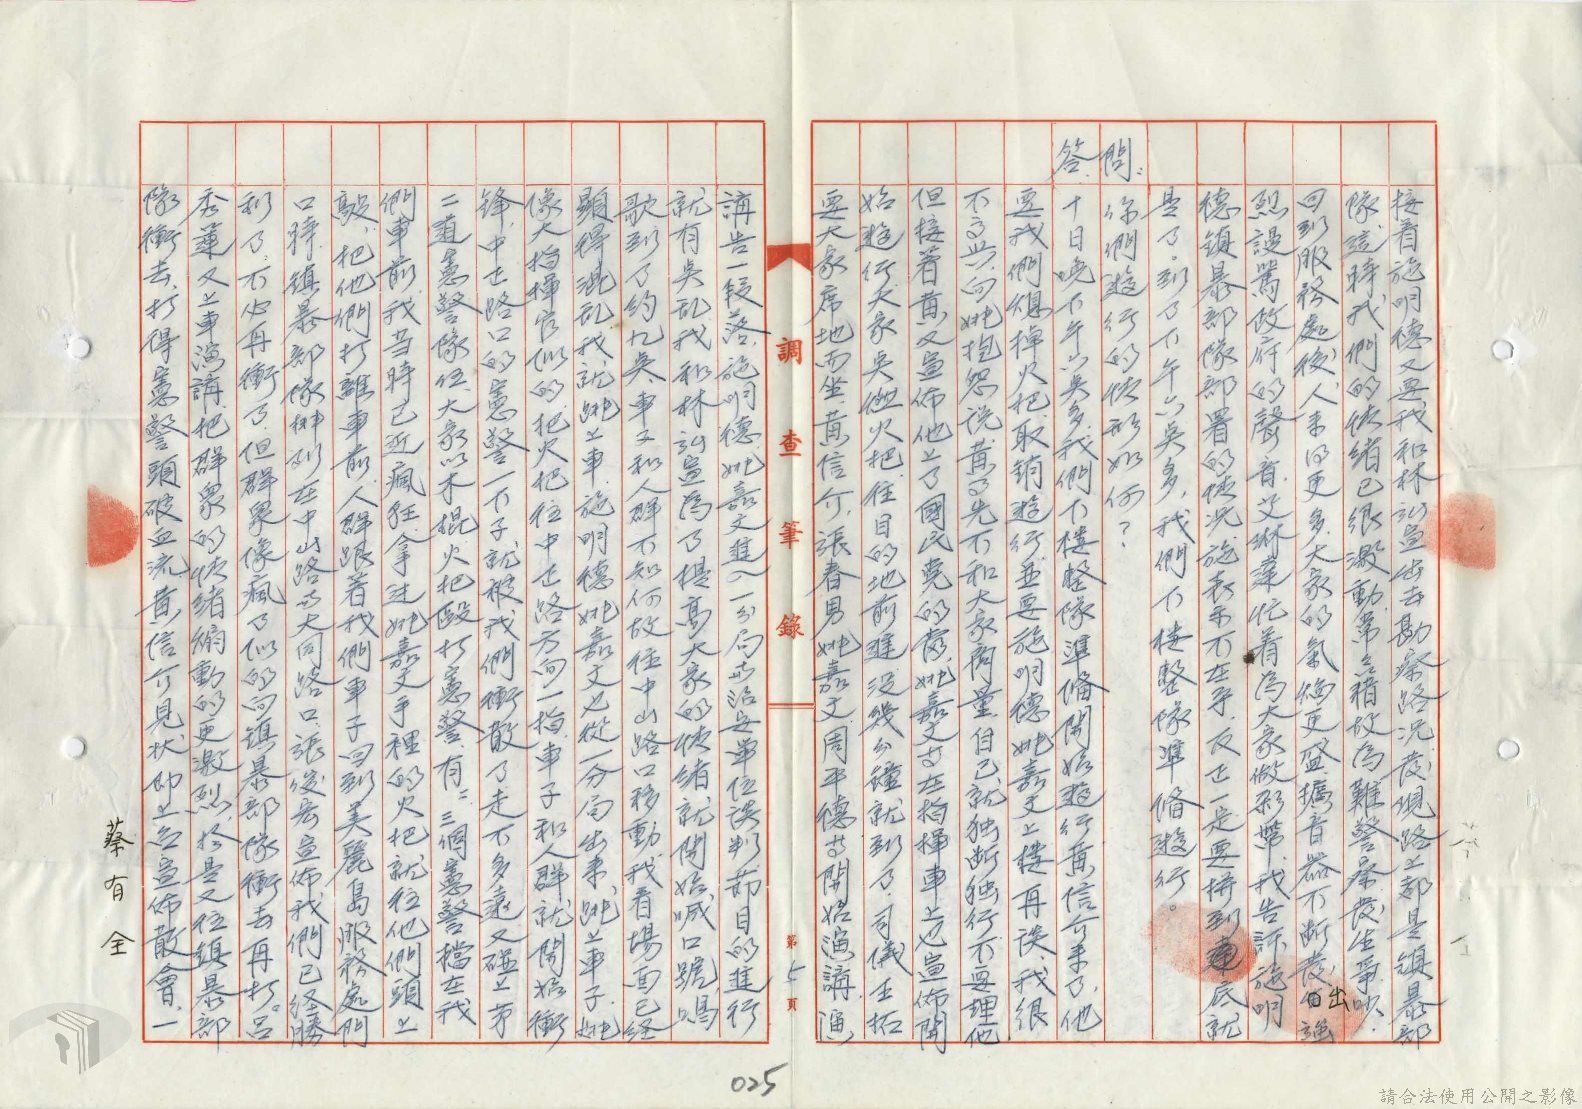 接着施明德又要我和林弘宣出去勘察路况,發現路上都是鎮暴部
隊,這時我們的情緒已很激動,常常藉故為難警察發生爭吵,
回到服務處後,人来的更多,大家的氣燄更盛,擴音器不断發出強
烈謾罵政府的聲音,艾琳達忙着為大家做彩帶,我告訴施明
德鎮暴部隊部署的情况,施表示不在乎,反正一定要拼到底就
是了。到了下午六點多,我們下樓整隊準備遊行。
問:你們遊行的情形如何?
答:十日晚下午六點多,我們下樓整隊準備開始遊行,黃信介来了,他
要我們熄掉火把,取銷遊行,並要施明德、姚嘉文上樓再談,我很
不高兴,向姚抱怨說,黃事先不和大家商量,自己就独断独行,不要理他,
但接着黃又宣佈他上了國民党的當,姚嘉文等在指揮車上也宣佈開
始遊行,大家点燃火把,往目的地前進,没幾分鐘就到了,司儀王拓
要大家席地而坐,黃信介、張春男、姚嘉文、周平德等開始演講,演
調查筆錄
第5頁
講告一段落,施明德、姚嘉文進入一分局与治安單位談判,節目的進行
就有点乱,我和林弘宣為了提高大家的情緒,就開始喊口號、唱
歌,到了約九点,車子和人群不知何故往中山路口移動,我看場面已經
顯得混乱,我就跳上車,施明德、姚嘉文也從一分局出来,跳上車子,姚
像大指揮官似的,把火把往中正路方向一指,車子和人群就開始衝
鋒,中正路口的憲警一下子就被我們衝散了,走不多遠,又碰上第
二道憲警隊伍,大家以木棍火把毆打憲警,有二、三個憲警擋在我
們車前,我当時已近瘋狂,拿过姚嘉文手裡的火把就往他們頭上
敲,把他們打離車前,人群跟着我們車子回到美麗島服務處門
口時,鎮暴部隊排列在中山路与大同路口,張俊宏宣佈我們已經勝
利了,不必再衝了,但群衆像瘋了似的向鎮暴部隊衝去再打,呂
秀蓮又上車演講,把群衆的情緒煽動的更激烈,於是又往鎮暴部
隊衝去,打得憲警頭破血流,黃信介見状,即上台宣佈散會,一
蔡有全
025
請合法使用公開之影像